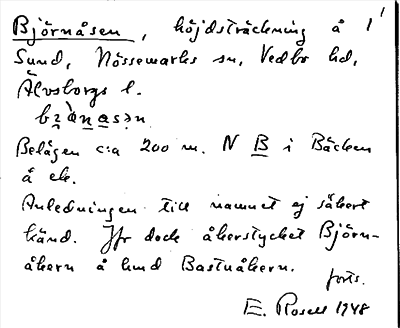 Björnåsen, höjdsträckning å 1'
Sund, Nössemarks sn, Vedbo hd,
Älvsborgs l.
Belägen c:a 200 m. N B i Bäcken
å ek.
Anledningen till namnet ej säkert
känd. Jfr dock åkerstycket Björn-
åkern å hmd Bastuåkern.
forts.
E. Rosell 1948